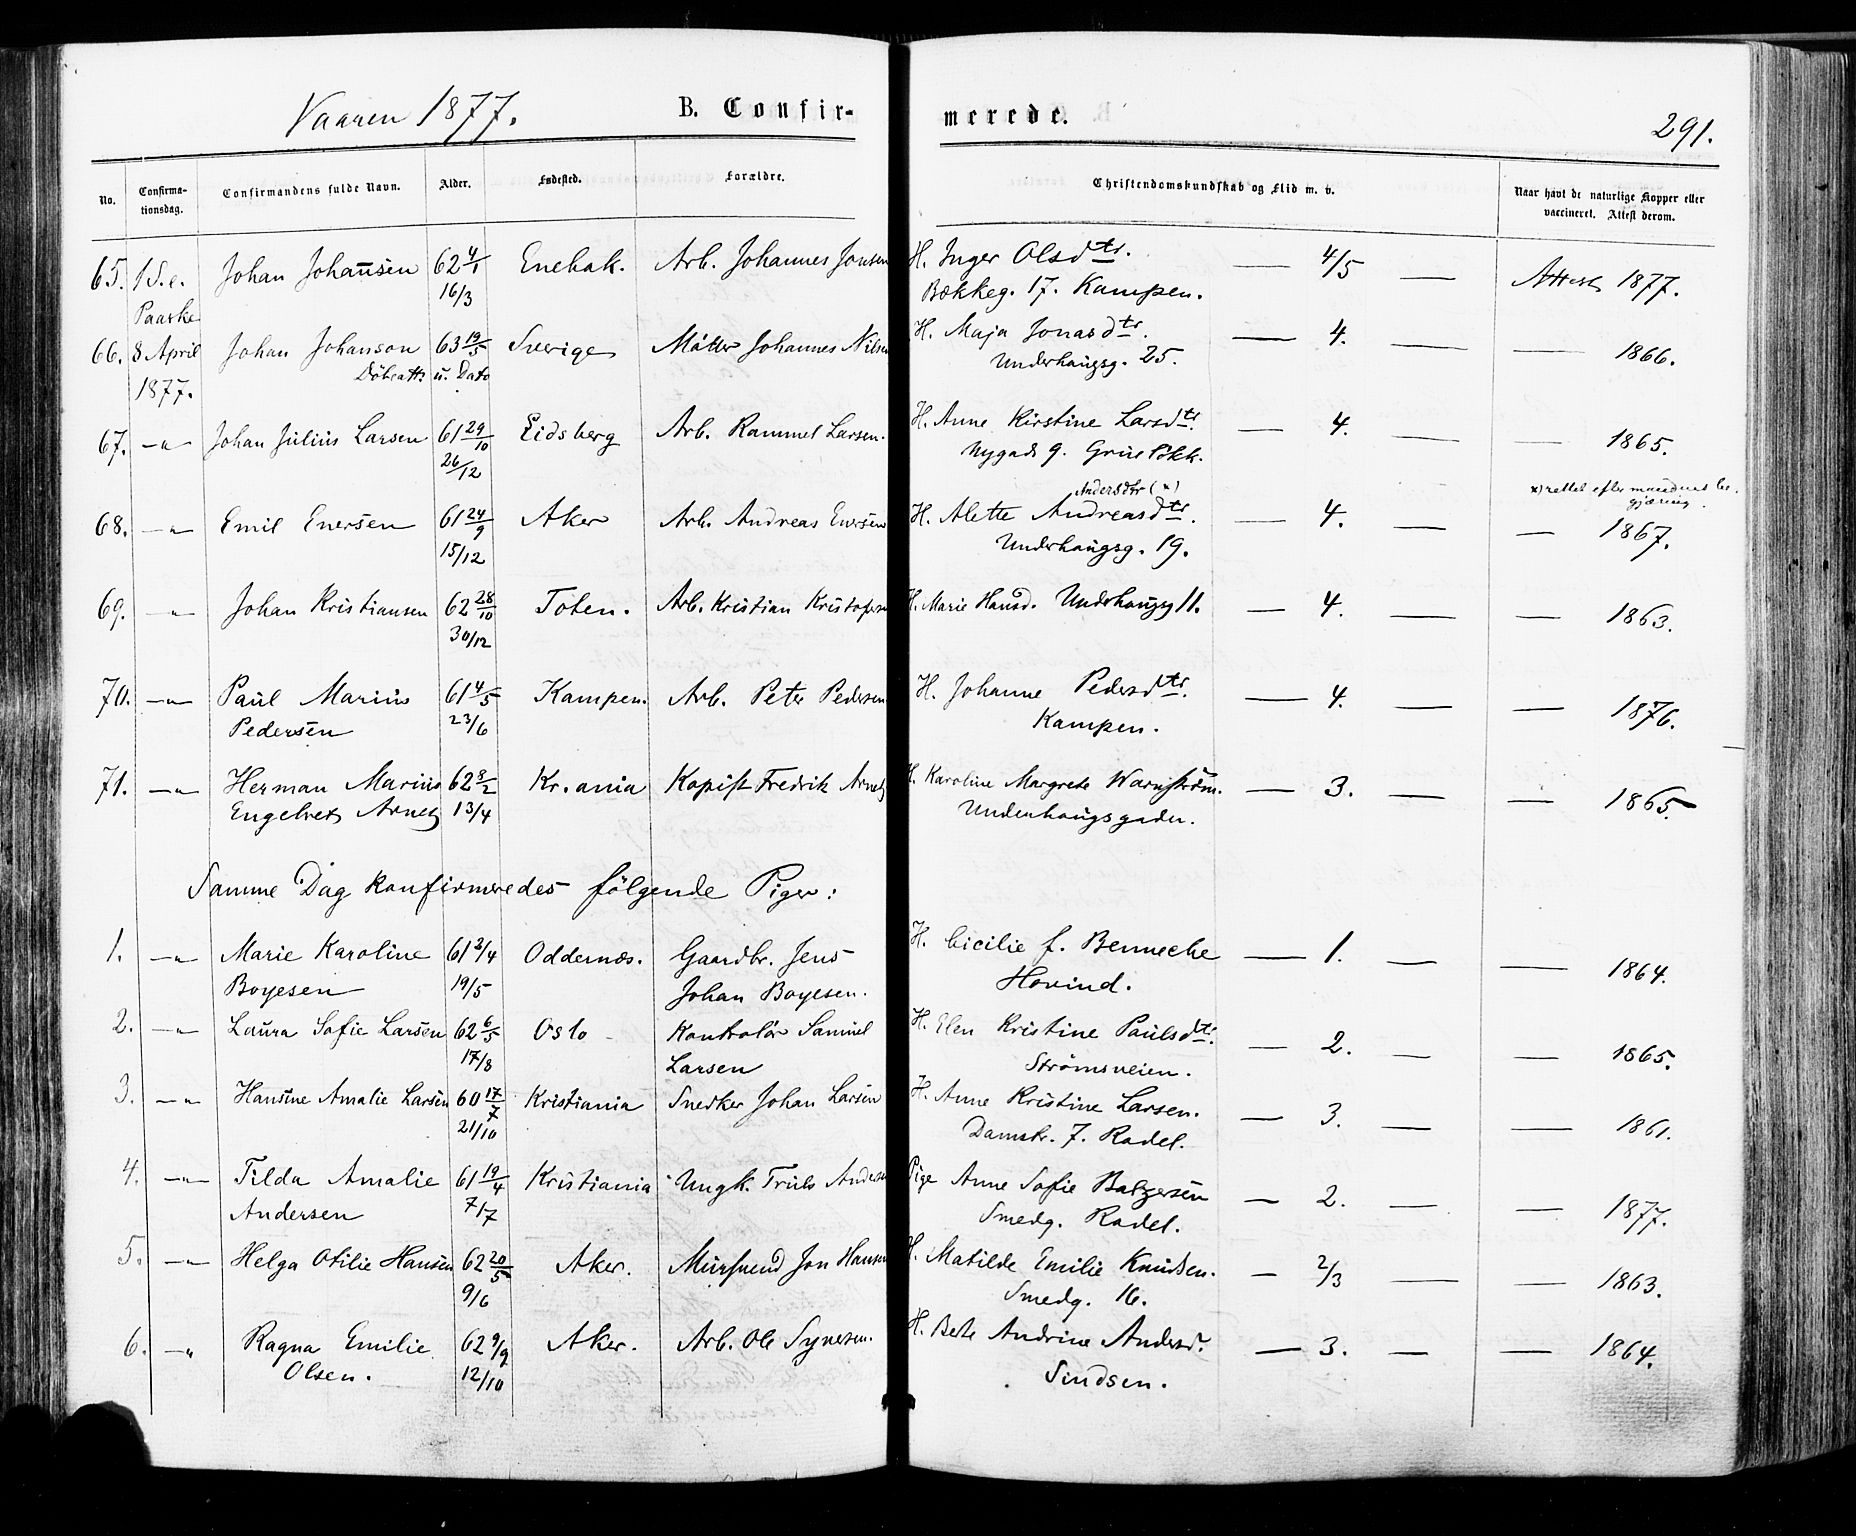 Vaaren 1877. B. Confir- merede. 291.
No. Confirma-tionsdag. Confirmandens fulde Navn. Alder. Fødested. Forældre. Christendomskundskab og Flid m. v. Naar havt de naturlige Kopper eller vaccineret. Attest derom.
65. 1 S. e. Johan Johansen 62 4/1 Enebak. Arb. Johannes Jonsen H. Inger Olsdtr. — 4/5 — Attest 1877.
Paaske 16/3 Bækkeg. 17. Kampen.
66. 8 April Johan Johanson 63 19/5 Sverige Møller Johannes Nilsen H. Maja Jonasdtr. — 4. — — 1866.
1877. Døbeatt. u. Dato Underhaugsg. 25.
67. —"— Johan Julius Larsen 61 29/10 Eidsberg Arb. Rammel Larsen. H. Anne Kirstine Larsdtr. — 4. — — 1865.
26/12 Nygade 9. Grünelökk.
Andersdtr (x) x) rettet efter mandens be-
gjæring.
68. —"— Emil Enersen 61 24/9 Aker Arb. Andreas Enersen H. Alette Andreasdtr. — 4. — — 1867.
15/12 Underhaugsg. 19.
69. —"— Johan Kristiansen 62 28/10 Toten. Arb. Kristian Kristofersen H. Marie Hansd. Underhaugsg 11. — 4. — — 1863.
30/12
70. —"— Paul Marius 61 4/5 Kampen. Arb. Peter Pedersen H. Johanne Pedersdtr. — 4. — — 1876.
Pedersen 23/6 Kampen.
71. —"— Herman Marius 62 8/2 Kr.ania Kopist Fredrik Arnetz H. Karoline Margrete Warnström. — 3. — — 1865.
Engelbret Arnetz 13/4 Underhaugsgaden.
Samme Dag konfirmeredes følgende Piger:
1. —"— Marie Karoline 61 3/4 Oddernæs. Gaardbr. Jens H. Cicilie f. Bennecke — 1. — — 1864.
Boyesen 19/5 Johan Boyesen. Hovind.
2. —"— Laura Sofie Larsen 62 6/5 Oslo Kontrolør Samuel H. Elen Kristine Paulsdtr. — 2. — — 1865.
17/8 Larsen Strømsveien.
3. —"— Hansine Amalie Larsen 60 17/7 Kristiania Snedker Johan Larsen H. Anne Kristine Larsen. — 3. — — 1861.
21/10 Damstr. 7. Rodel.
4. —"— Tilda Amalie 61 19/4 Kristiania Ungk. Truls Andersen Pige Anne Sofie Balzersen — 2. — — 1877.
Andersen 7/7 Smedg. Rodel.
5. —"— Helga Otilie Hansen 62 20/5 Aker. Mursvend Jon Hansen H. Matilde Emilie Knudsen. — 2/3 — — 1863.
9/6 Smedg. 16.
6. —"— Ragna Emilie 62 9/9 Aker. Arb. Ole Synesen. H. Bete Andrine Andersd. — 3. — — 1864.
Olsen. 12/10 Sindsen.